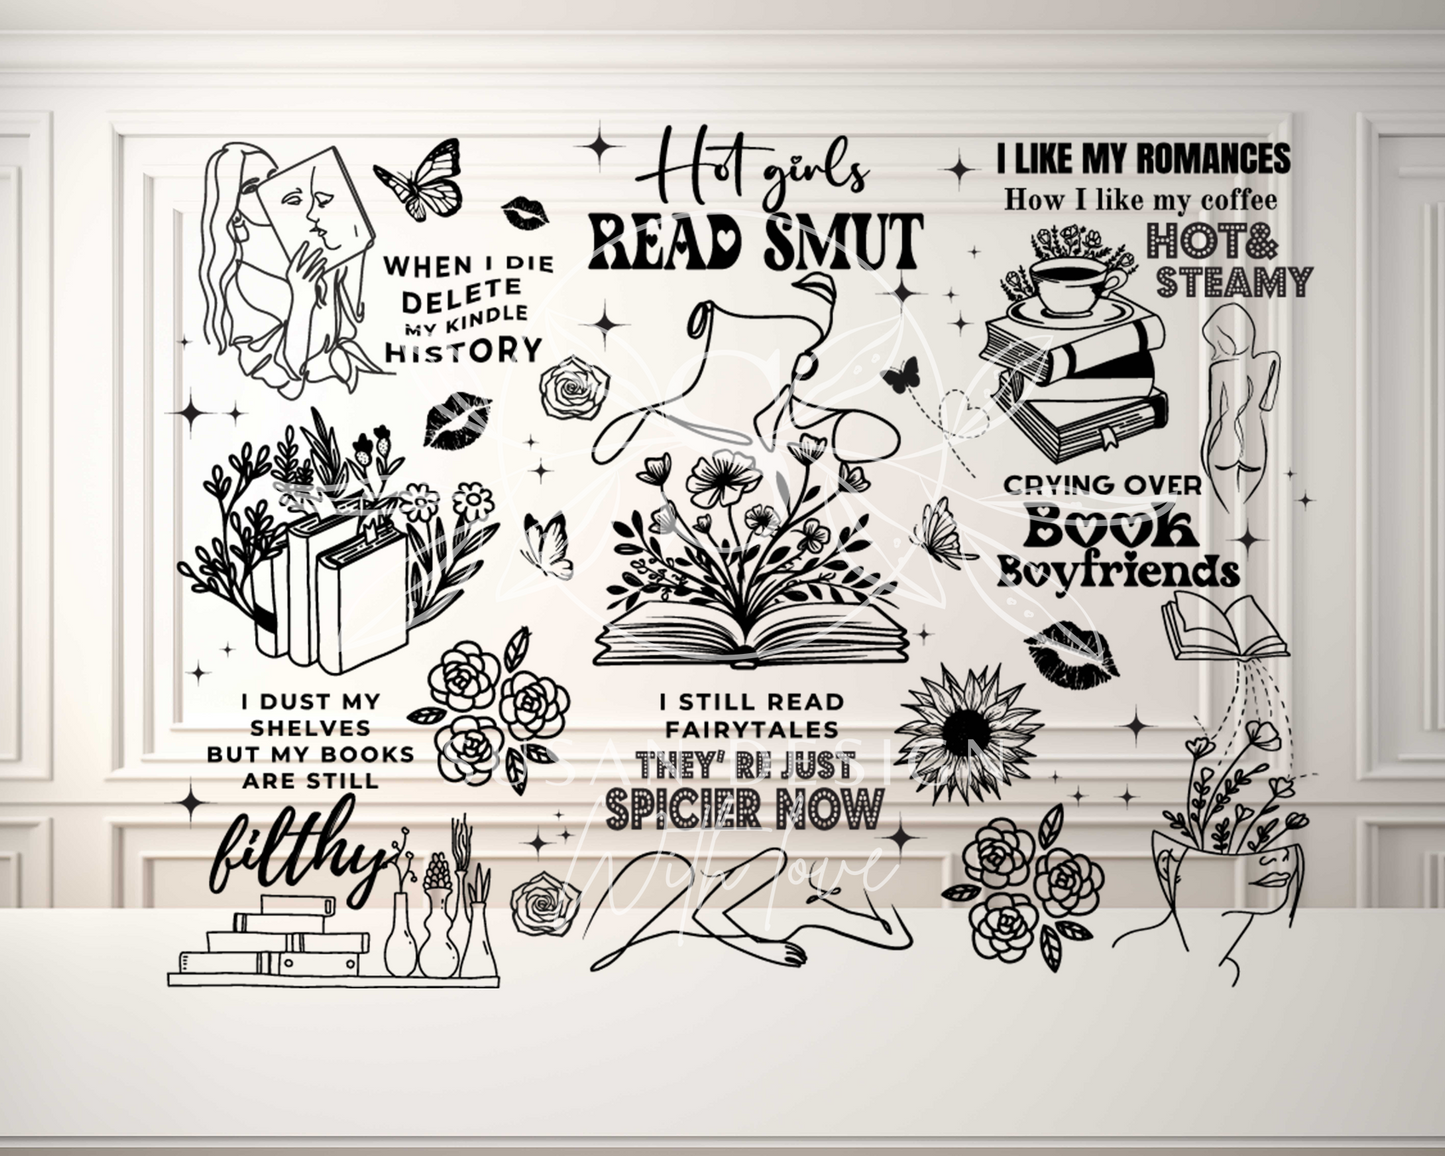 Hot girls
READ SMUT
WHEN I DIE
DELETE
MY KINDLE
HISTORY
I LIKE MY ROMANCES
How I like my coffee
HOT&
STEAMY
CRYING OVER
BOOK
Boyfriends
I DUST MY
SHELVES
BUT MY BOOKS
ARE STILL
filthy
I STILL READ
FAIRYTALES
THEY' RE JUST
SPICIER NOW
DESIGN
With love